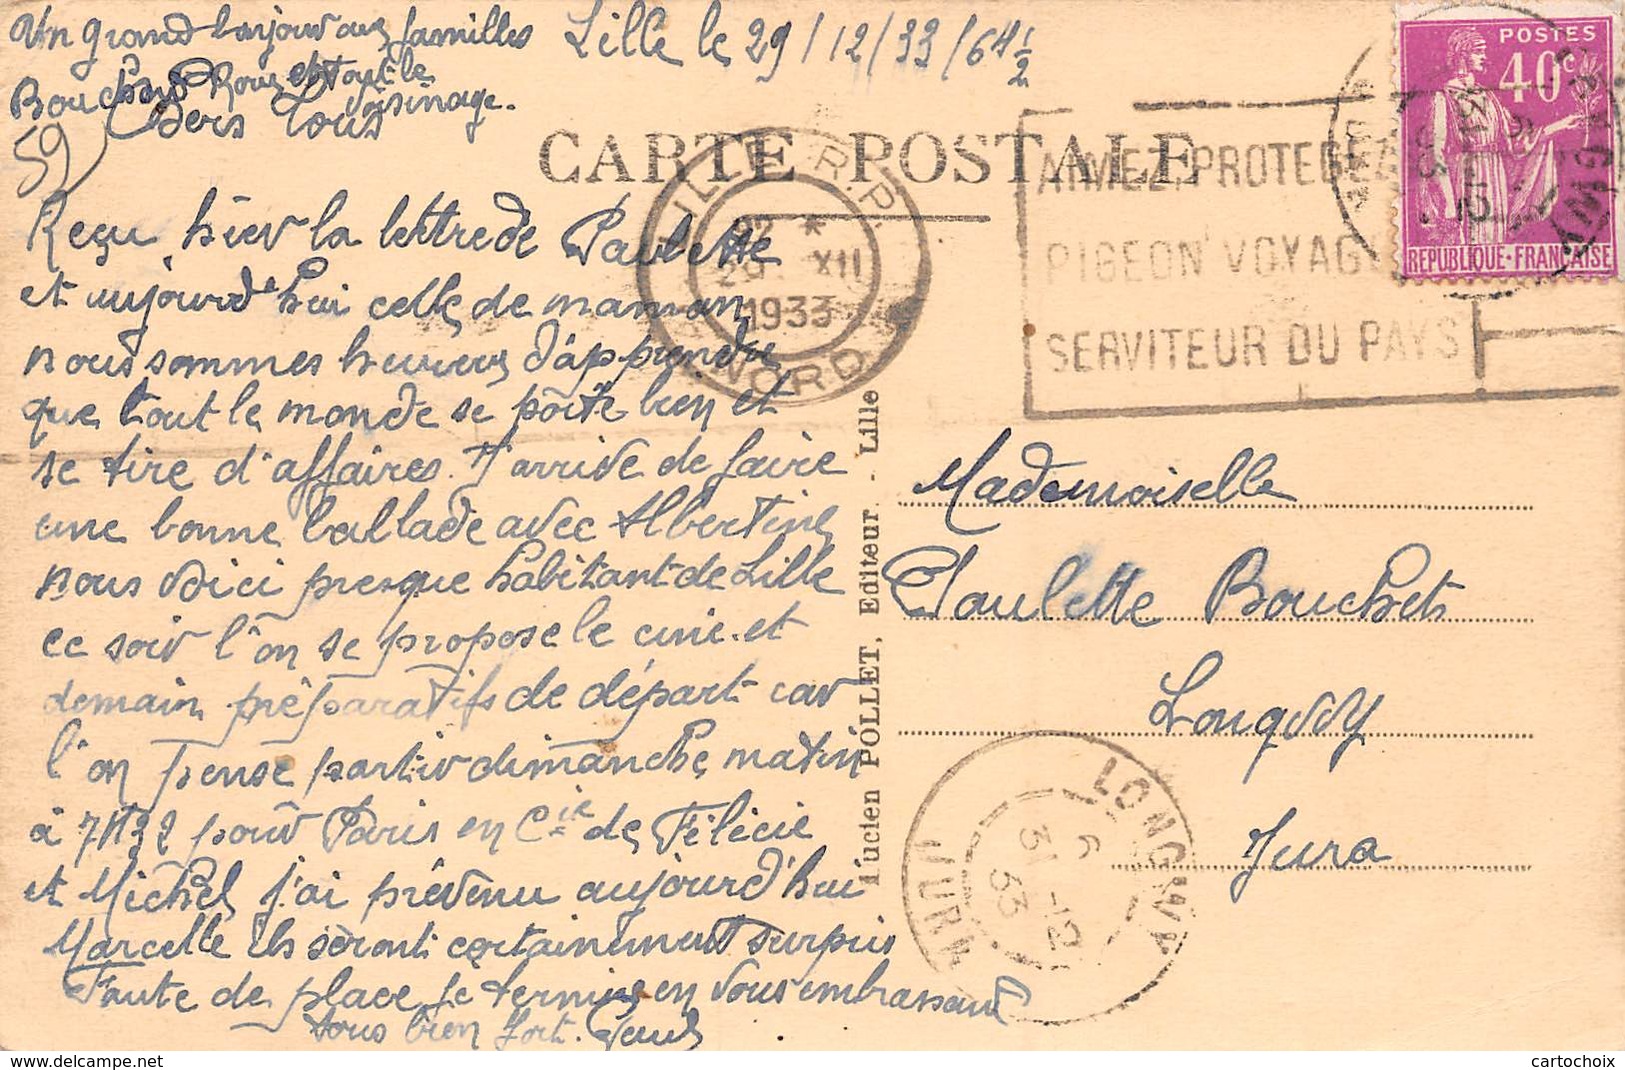 Un grand bonjour aux familles
Bouchets Roux et tout le
voisinage.
Tous
59
Lille le 29/12/33/6H 1/2
CARTE POSTALE
LILLE R.P.
22 *
29 XII
1933
NORD
AIMEZ PROTEGEZ
PIGEON VOYAG
SERVITEUR DU PAYS
POSTES
40c
REPUBLIQUE-FRANCAISE
Reçu hier la lettre de Paulette
et aujourd'hui celle de maman,
nous sommes heureux d'apprendre
que tout le monde se pôrte bien et
se tire d'affaires. J'arrive de faire
une bonne ballade avec Albertine
nous voici presque habitant de Lille
ce soir l'on se propose le ciné et
demain préparatifs de départ car
l'on pense partir dimanche matin
à 7H32 pour Paris en Cie de Félécie
et Michel j'ai prévenu aujourd'hui
Marcelle ils seront certainement surpris
Faute de place je termine en vous embrassant
tous bien fort. Paul
Lucien POLLET, Editeur - Lille
Mademoiselle
Paulette Bouchets
Longwy
Jura
LONGWY
6
31-12
33
JURA
delcampe.net
cartochoix